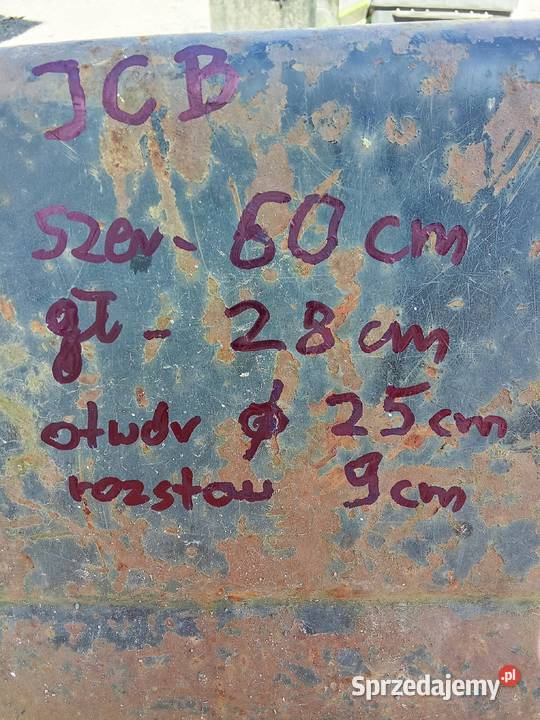 JCB
szer - 60 cm
gł - 28 cm
otwór ϕ 25 cm
rozstaw 9 cm
Sprzedajemy.pl